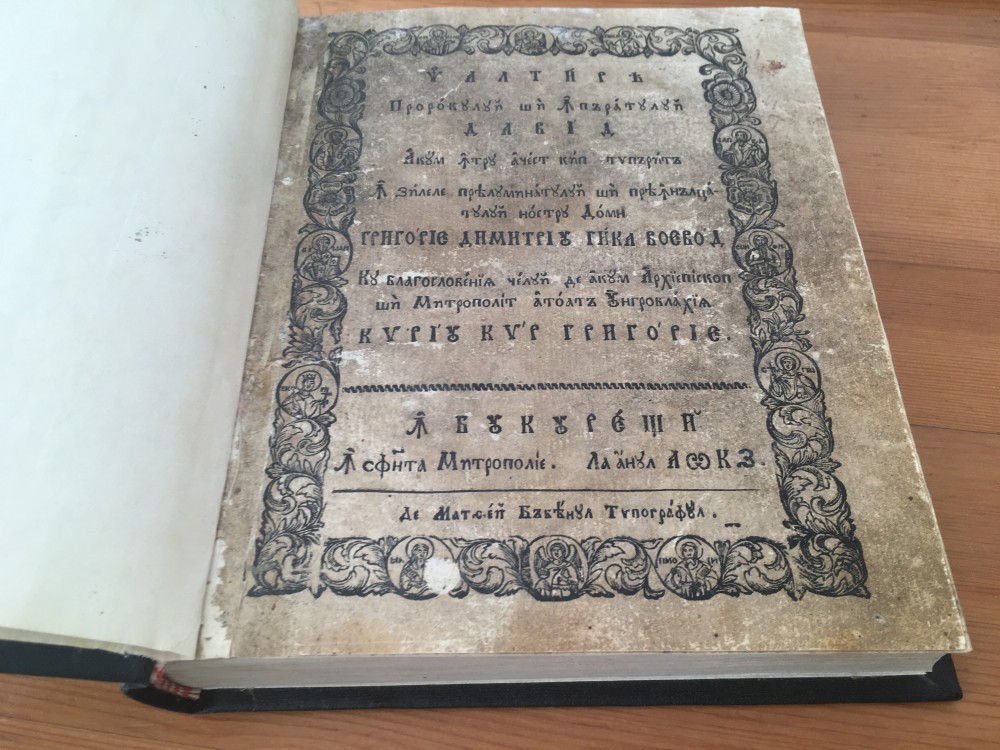 Ѱалти́рѣ
Проро́кулуй ши́ ꙟпъра́тулуй
Дави́д
Аку́м ꙟ́тру аче́ст кип типъри́тъ
ꙟ зи́леле прѣлумина́тулуй ши́ прѣꙟнълца́-
тулуй но́стру До́мн
Григо́рїе Димитрїу Ги́ка Воево́д
Ку благослове́нїѧ че́луй де аку́м Архїепи́скоп
ши́ Митрополи́т ато́атъ Ѹнгровла́хїѧ
Кѵ́рїу Кѵ́р Григо́рїе.
ꙟ Бꙋкꙋре́щй
ꙟ сфн҃та Митропо́лїе. Ла а́нул ҂аѡкз.
де Матѳе́й Бъбѣ́нул Типогра́фул.